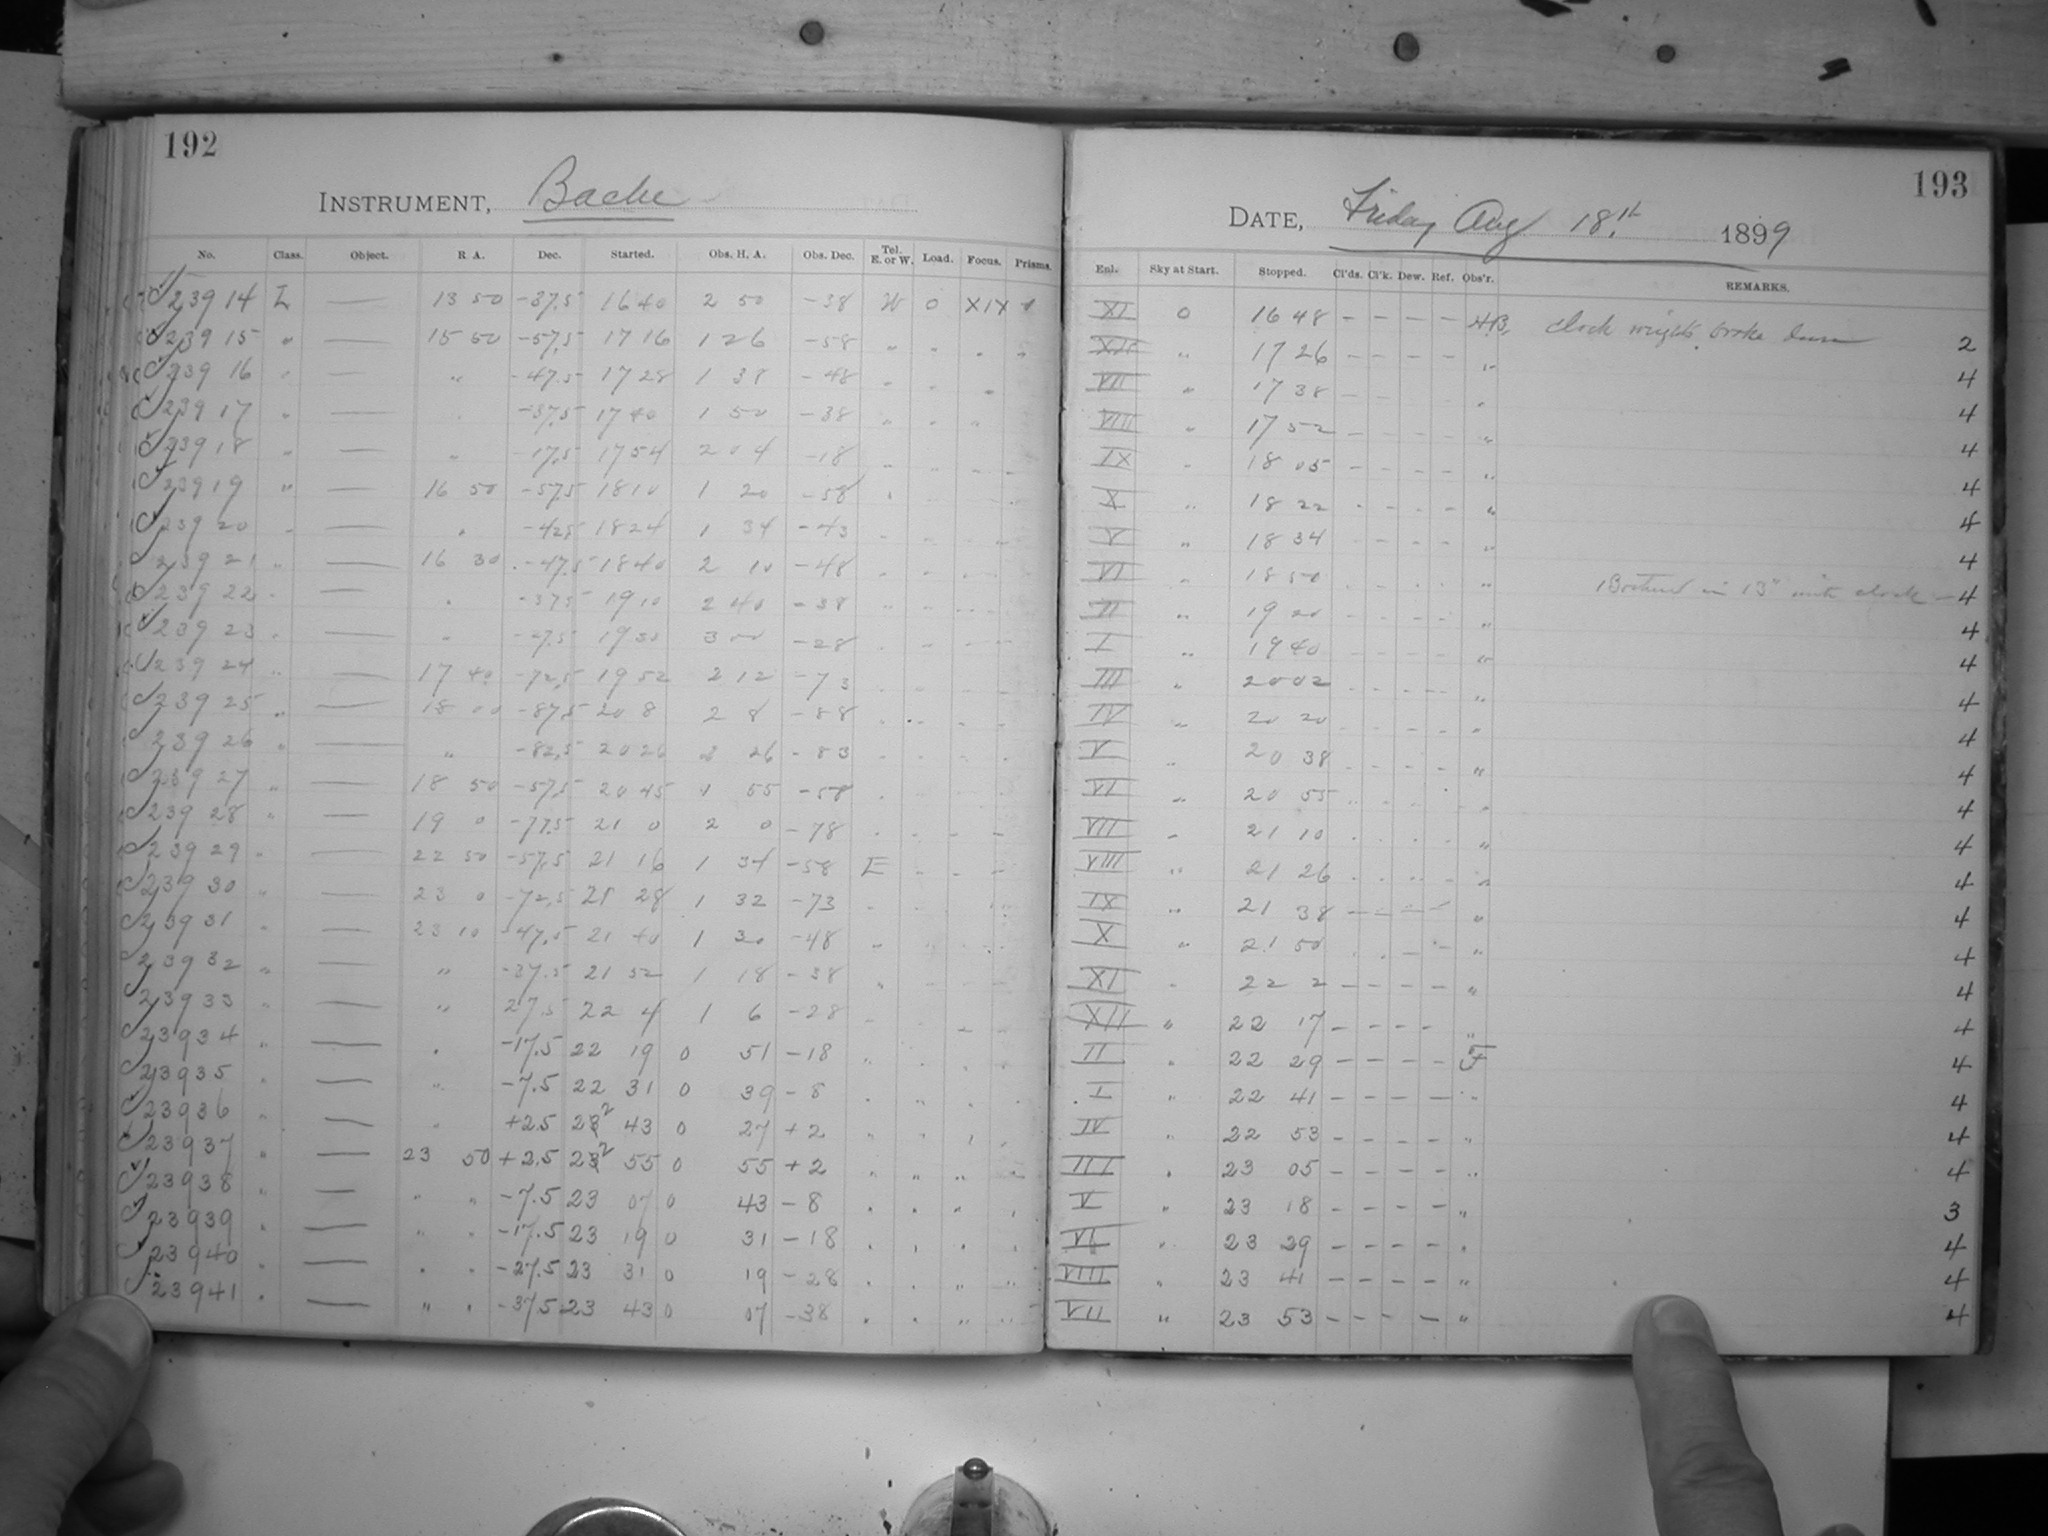 192
INSTRUMENT, Bache
No. Class. Object. R. A. Dec. Started. Obs. H. A. Obs. Dec. Tel. E. or W. Load. Focus. Prisms.
23914 L — 13 50 -37.5 16 40 2 50 -38 W 0 XIX
23915 " — 15 50 -57.5 17 16 1 26 -58 " " " "
23916 " — " -47.5 17 28 1 38 -48 " " "
23917 " — " -37.5 17 40 1 50 -38 " " "
23918 " — " -17.5 17 54 2 04 -18 " " - -
23919 " — 16 50 -57.5 18 10 1 20 -58 "
23920 " — " -42.5 18 24 1 34 -43
23921 " — 16 30 -47.5 18 40 2 10 -48
23922 " — " -37.5 19 10 2 40 -38
23923 " — " -27.5 19 30 3 00 -28
23924 " — 17 40 -72.5 19 52 2 12 -73
23925 " — 18 00 -87.5 20 8 2 8 -88
23926 " — " -82.5 20 26 2 26 -83
23927 " — 18 50 -57.5 20 45 1 55 -58
23928 " — 19 0 -77.5 21 0 2 0 -78
23929 " — 22 50 -57.5 21 16 1 34 -58 E
23930 " — 23 0 -72.5 21 28 1 32 -73
23931 " — 23 10 -47.5 21 40 1 30 -48 "
23932 " — " -37.5 21 52 1 18 -38 "
23933 " — " 27.5 22 4 1 6 -28
23934 " — " -17.5 22 19 0 51 -18 "
23935 " — " -7.5 22 31 0 39 -8 " " "
23936 " — " +2.5 22 43 0 27 +2 " " "
23937 " — 23 50 +2.5 22 55 0 55 +2 " " "
23938 " — " " -7.5 23 07 0 43 -8 " " " "
23939 " — " " -17.5 23 19 0 31 -18 " " " "
23940 " — " " -27.5 23 31 0 19 -28 " " " "
23941 " — " " -37.5 23 43 0 07 -38 " " " "
193
DATE, Friday Aug 18th. 1899
Enl. Sky at Start. Stopped. Cl'ds. Cl'k. Dew. Ref. Obs'r. REMARKS.
XI 0 16 48 - - - - HB, Clock weights broke down 2
XII " 17 26 - - - - " 4
VII " 17 38 - - - " 4
VIII " 17 52 - - - - " 4
IX " 18 05 - - - - " 4
X " 18 22 - - - - " 4
V " 18 34 - - - - " 4
VI " 18 50 - - - - " in 13" with clock — 4
II " 19 20 - - - - " 4
I " 19 40 - - - - " 4
III " 20 02 - - - - " 4
IV " 20 20 - - - - " 4
V " 20 38 - - - - " 4
VI " 20 55 - - - - " 4
VII " 21 10 - - - - " 4
VIII " 21 26 - - - - " 4
IX " 21 38 - - - - " 4
X " 21 50 - - - - " 4
XI " 22 2 - - - - " 4
XII " 22 17 - - - - " 4
II " 22 29 - - - - F 4
I " 22 41 - - - - " 4
IV " 22 53 - - - - " 4
III " 23 05 - - - - " 4
V " 23 18 - - - - " 3
VI " 23 29 - - - - " 4
VIII " 23 41 - - - - " 4
VII " 23 53 - - - - " 4